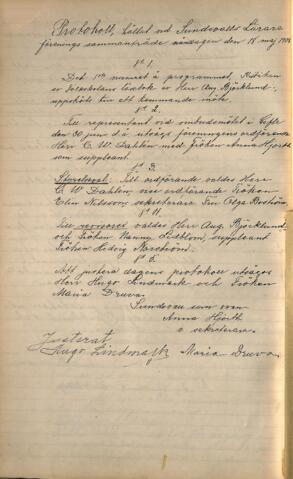 Protokoll, hållet vid Sundsvalls Lärare
förenings sammanträde den 18 maj
§ 1.
Det 1sta numret å programmet, Kritiken
av Folkskolans läsebok av Herr Aug. Björcklund,
uppsköts till ett kommande möte.
§ 2.
Till representant vid ombudsmötet i Gefle
den 30 juni d. å. utsågs föreningens ordförande
Herr C. W. Dahlén med fröken Anna Hjorth
som suppleant.
§ 3.
Styrelseval. Till ordförande valdes Herr
C. W. Dahlén, vice ordförande Fröken
Elin Nilsson, sekreterare Fru Olga
§ 4.
Till revisorer valdes Herr Aug. Björcklund
och Fröken Nanny, suppleant
Fröken Hedvig Norström.
§ 5.
Att justera dagens protokoll utsågos
Herr Hugo Lindmark och Fröken
Maria Druva.
Sundsvall som ovan
Anna Hjorth
v. sekreterare.
Justerat
Hugo Lindmark Maria Druva